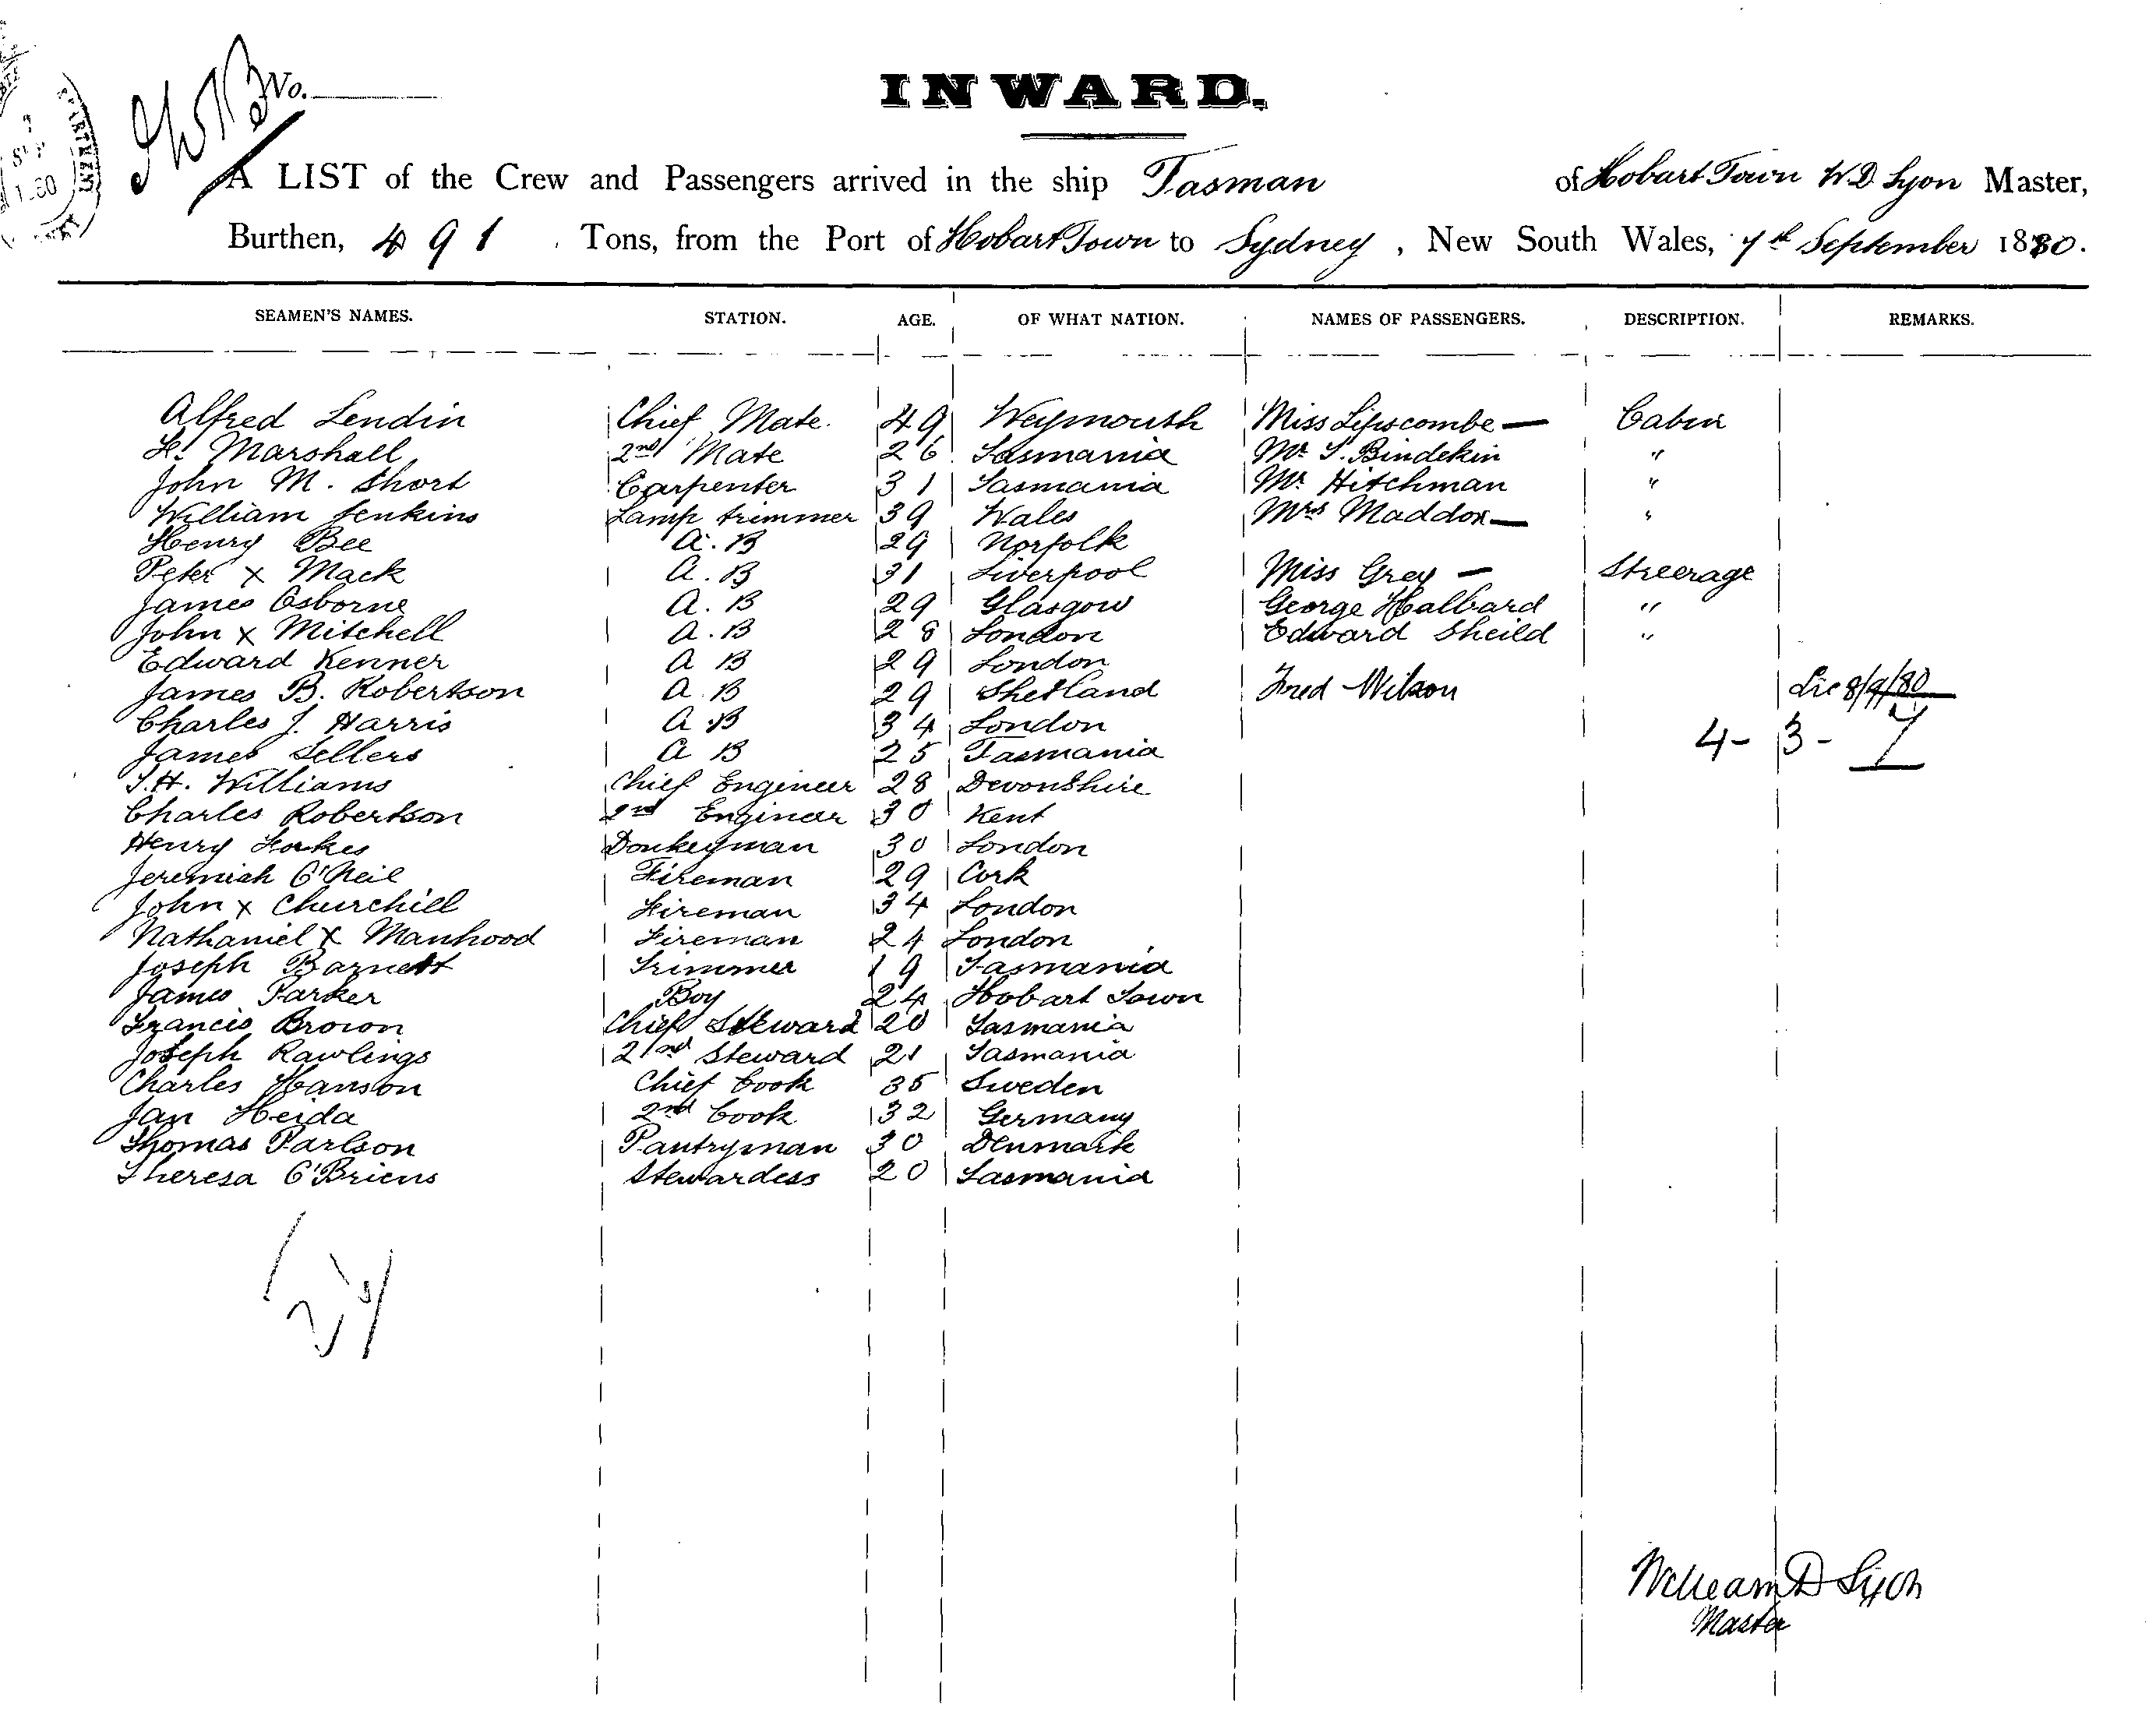 No.
INWARD.
A LIST of the Crew and Passengers arrived in the ship Tasman of Hobart Town W.D Lyon Master,
Burthen, 491 Tons, from the Port of Hobart Town to Sydney, New South Wales, 7th September 1880.
SEAMEN'S NAMES. STATION. AGE. OF WHAT NATION. NAMES OF PASSENGERS. DESCRIPTION. REMARKS.
Alfred Lendin Chief Mate. 49 Weymouth Miss Lipscombe — Cabin
H. Marshall 2nd Mate 26 Tasmania Mr S. Bindekin "
John M. Short Carpenter 31 Tasmania Mr Hitchman "
William Jenkins Lamp trimmer 39 Wales Mrs Maddox — "
Henry Bee A.B 29 Norfolk
Peter x Mack A.B 31 Liverpool Miss Grey — Streerage
James Osborne A.B 29 Glasgow George Halbard "
John x Mitchell A.B 28 London Edward Sheild "
Edward Kenner A B 29 London
James B. Robertson A.B 29 Shetland Fred Wilson Lic 8/9/80
Charles J. Harris A.B 34 London
James Sellers A B 25 Tasmania 4- 3- 7
T.H. Williams Chief Engineer 28 Devonshire
Charles Robertson 2nd Engineer 30 Kent
Henry Donkeyman 30 London
Jeremiah O'Neil Fireman 29 Cork
John x Churchill Fireman 34 London
Nathaniel x Manhood Fireman 24 London
Joseph Barnett Trimmer 19 Tasmania
James Parker Boy 24 Hobart Town
Francis Brown Chief Steward 20 Tasmania
Joseph Rawlings 2nd Steward 21 Tasmania
Charles Hanson Chief Cook 35 Sweden
Jan Heida 2nd Cook 32 Germany
Thomas Parlson Pantryman 30 Denmark
Theresa O'Briens Stewardess 20 Tasmania
William D Lyon
Master